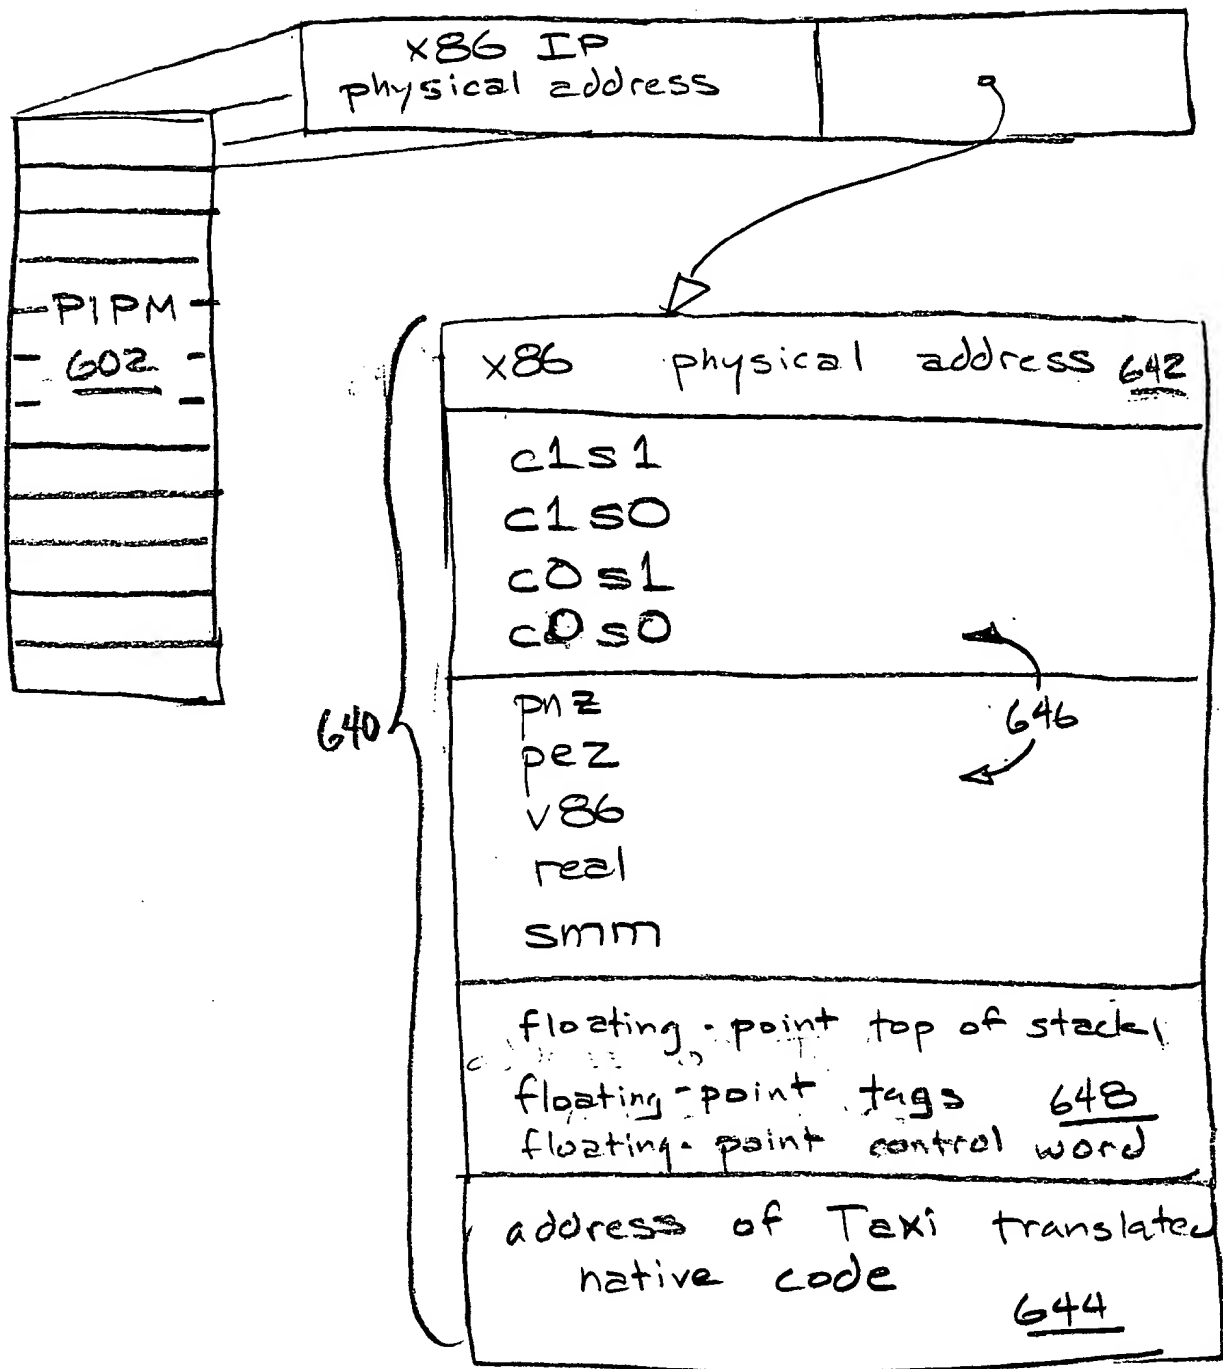 x86 IP
physical address
PIPM
602
x86 physical address 642
c1s1
c1s0
c0s1
c0s0
pnz
646
640
pez
v86
real
smm
floating-point top of stack,
floating-point tags 648
floating-point control word
address of Taxi translated
native code
644